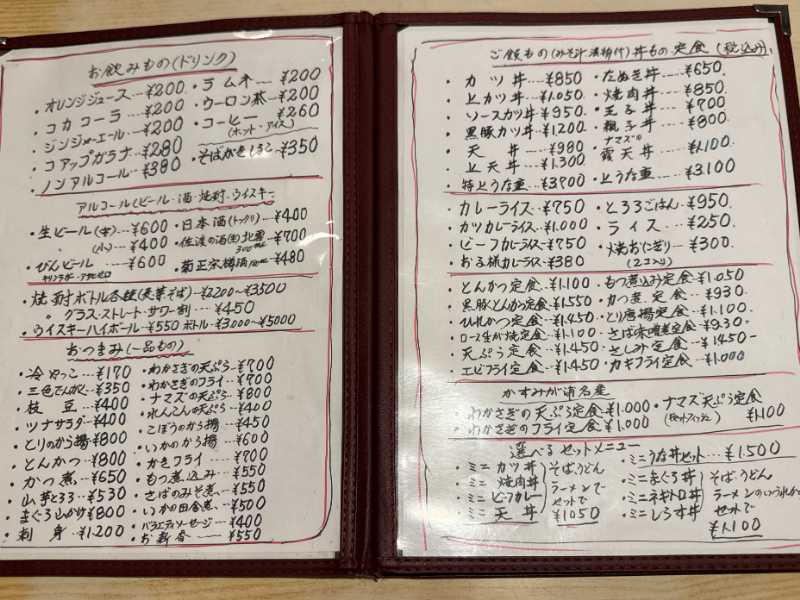 お飲みもの(ドリンク)
・オレンジジュース…¥200 ・ラムネ…¥200
・コカコーラ……¥200 ・ウーロン茶…¥200
・ジンジャーエール…¥200 ・コーヒー…¥260
(ホット・アイス)
・コアップガラナ…¥280
・ノンアルコール…¥380 ・そばがきしるこ…¥350
アルコール(ビール・酒・焼酎・ウイスキー
・生ビール(中)…¥600 ・日本酒(トックリ)…¥400
〃 (小)…¥400 ・佐渡の酒(生)北雪…¥700
・びんビール……¥600 ・菊正宗樽酒…¥480
・焼酎ボトル各種(麦芋そば)…¥2200～¥3500
〃 グラス・ストレート・サワー割…¥450
・ウイスキーハイボール…¥550 ボトル…¥3,000～¥5000
おつまみ(一品もの)
・冷やっこ…¥170 ・わかさぎの天ぷら…¥700
・三色でんがく…¥350 ・わかさぎのフライ…¥700
・枝豆……¥400 ・ナマズの天ぷら…¥800
・ツナサラダ…¥400 ・れんこんの天ぷら…¥400
・とりのから揚…¥800 ・ごぼうのから揚…¥450
・とんかつ…¥800 ・いかのから揚…¥600
・かつ煮…¥650 ・かきフライ…¥700
・山芋とろろ…¥530 ・もつ煮込み…¥550
・まぐろ山かけ…¥800 ・さばのみそ煮…¥550
・刺身…¥1.200 ・いかの田舎煮…¥500
・バラエティソーセージ…¥400
・お新香……¥550
ご飯もの(みそ汁漬物付)丼もの定食(税込み)
・カツ丼…¥850 ・たぬき丼…¥650
・上カツ丼…¥1.050 ・焼肉丼…¥850
・ソースカツ丼…¥950 ・玉子丼…¥700
・黒豚カツ丼…¥1.200 ・親子丼…¥800
・天丼……¥980 ・ナマズの
・上天丼…¥1.300 霞天丼…¥1,100
・特上うな重…¥3,900 ・上うな重…¥3.100
・カレーライス…¥750 ・とろろごはん…¥950
・カツカレーライス…¥1.000 ・ライス…¥250
・ビーフカレーライス…¥750 ・焼おにぎり…¥300
・お子様カレーライス…¥380 (2コ入り)
・とんかつ定食…¥1.100 ・もつ煮込み定食…¥1.050
・黒豚とんかつ定食…¥1.550 ・かつ煮定食…¥930
・ひれかつ定食…¥1.450 ・とり唐揚定食…¥1.100
・ロース生が焼定食…¥1.100 ・さば味噌煮定食…¥930
・天ぷら定食…¥1.450 ・さしみ定食…¥1450
・エビフライ定食…¥1.450 ・カキフライ定食…¥1.000
かすみが浦名産
・わかさぎの天ぷら定食…¥1.000 ・ナマズ天ぷら定食
・わかさぎのフライ定食…¥1.000 (キャットフィッシュ) ¥1,100
選べるセットメニュー
・ミニうな丼セット…¥1.500
・ミニカツ丼 そば、うどん ・ミニまぐろ丼 そば、うどん
・ミニ焼肉丼 ラーメンで ・ミニネギトロ丼 ラーメンのいづれか
・ミニビーフカレー セットで ・ミニしらす丼 セットで
・ミニ天丼 ¥1050 ¥1,100